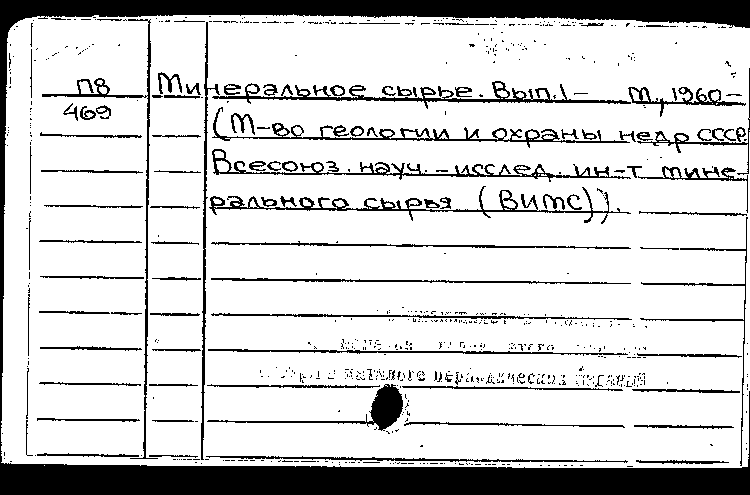 П8 Минеральное сырье. Вып. 1- М., 1960-
469 (М-во геологии и охраны недр СССР
Всесоюз. науч.-исслед. ин-т мине-
рального сырья (ВИМС)).
каталоге периодических изданий